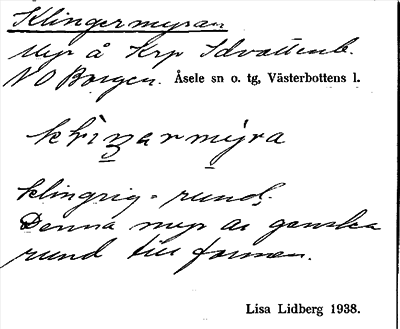 Klingermyran
Myr å Krp Idvattenb.
NO Borgen. Åsele sn o. tg, Västerbottens l.
klingrig = rund.
Denna myr är ganska
rund till formen.
Lisa Lidberg 1938.